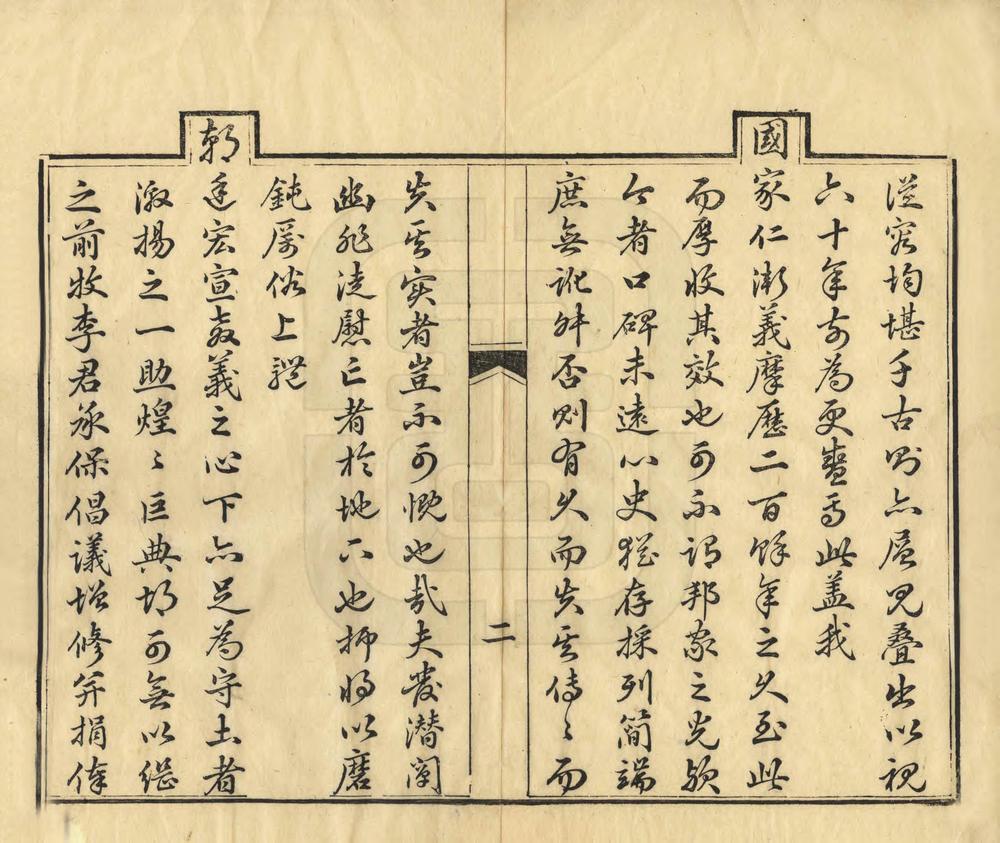 從容均堪千古則亦屢見叠出以視
六十年前為更盛焉此蓋我
國家仁漸義摩歷二百餘年之久至此
而厚收其效也可不謂邦家之光歟
今者口碑未遠心史猶存採列簡端
庶無訛舛否則有久而失其傳〻而
二
失其實者豈不可慨也哉夫發潛闡
幽非徒慰亡者於地下也抑將以磨
鈍厲俗上體
朝廷宏宣教義之心下亦足為守土者
激揚之一助煌〻巨典胡可無以繼
之前牧李君承保倡議增修并捐俸